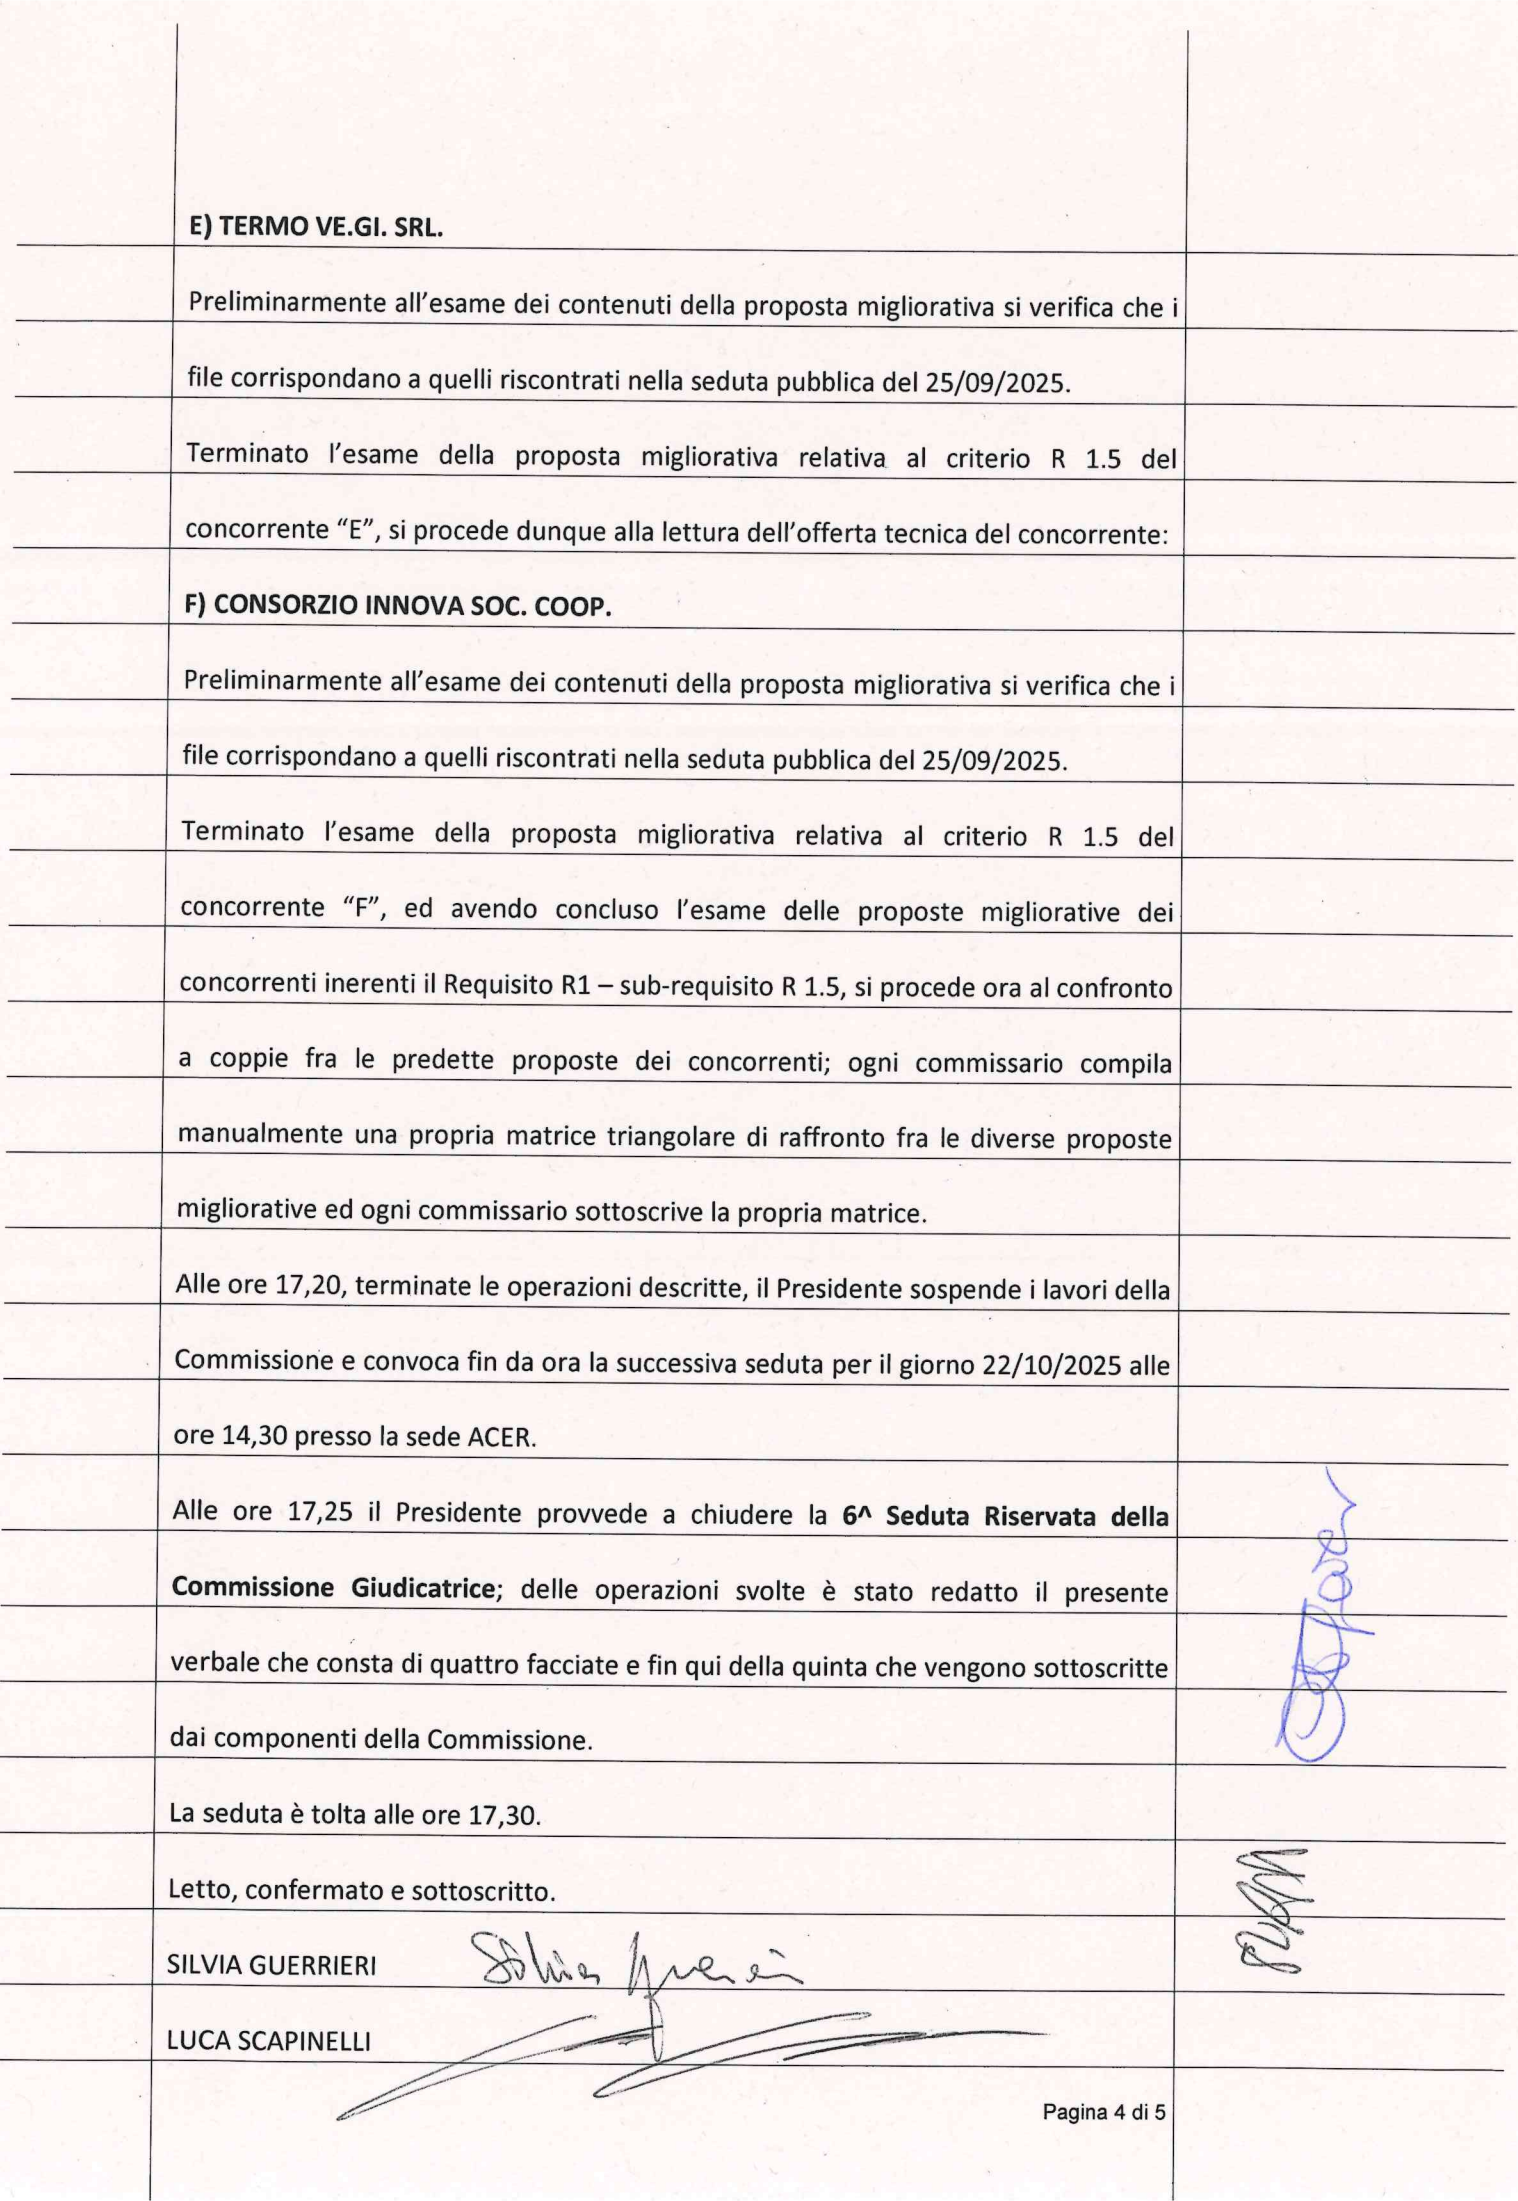 E) TERMO VE.GI. SRL.
Preliminarmente all’esame dei contenuti della proposta migliorativa si verifica che i
file corrispondano a quelli riscontrati nella seduta pubblica del 25/09/2025.
Terminato l’esame della proposta migliorativa relativa al criterio R 1.5 del
concorrente “E”, si procede dunque alla lettura dell’offerta tecnica del concorrente:
F) CONSORZIO INNOVA SOC. COOP.
Preliminarmente all’esame dei contenuti della proposta migliorativa si verifica che i
file corrispondano a quelli riscontrati nella seduta pubblica del 25/09/2025.
Terminato l’esame della proposta migliorativa relativa al criterio R 1.5 del
concorrente “F”, ed avendo concluso l’esame delle proposte migliorative dei
concorrenti inerenti il Requisito R1 – sub-requisito R 1.5, si procede ora al confronto
a coppie fra le predette proposte dei concorrenti; ogni commissario compila
manualmente una propria matrice triangolare di raffronto fra le diverse proposte
migliorative ed ogni commissario sottoscrive la propria matrice.
Alle ore 17,20, terminate le operazioni descritte, il Presidente sospende i lavori della
Commissione e convoca fin da ora la successiva seduta per il giorno 22/10/2025 alle
ore 14,30 presso la sede ACER.
Alle ore 17,25 il Presidente provvede a chiudere la 6^ Seduta Riservata della
Commissione Giudicatrice; delle operazioni svolte è stato redatto il presente
verbale che consta di quattro facciate e fin qui della quinta che vengono sottoscritte
dai componenti della Commissione.
La seduta è tolta alle ore 17,30.
Letto, confermato e sottoscritto.
SILVIA GUERRIERI Silvia Guerrieri
LUCA SCAPINELLI
Pagina 4 di 5